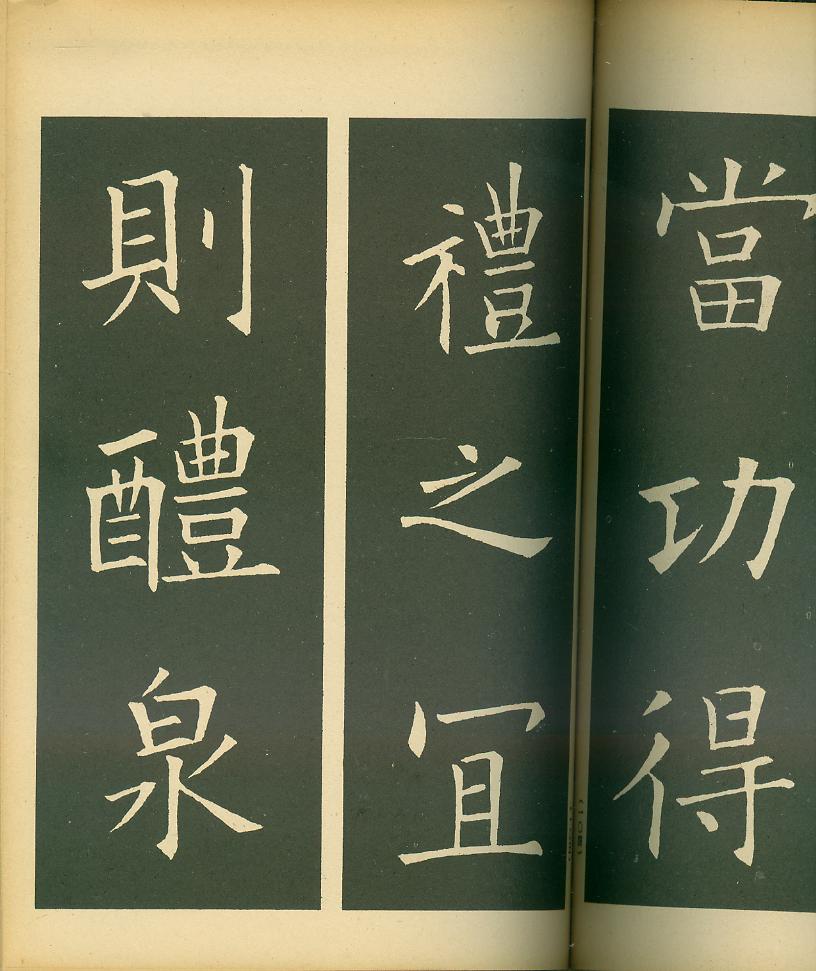 當功得
禮之冝
則醴泉